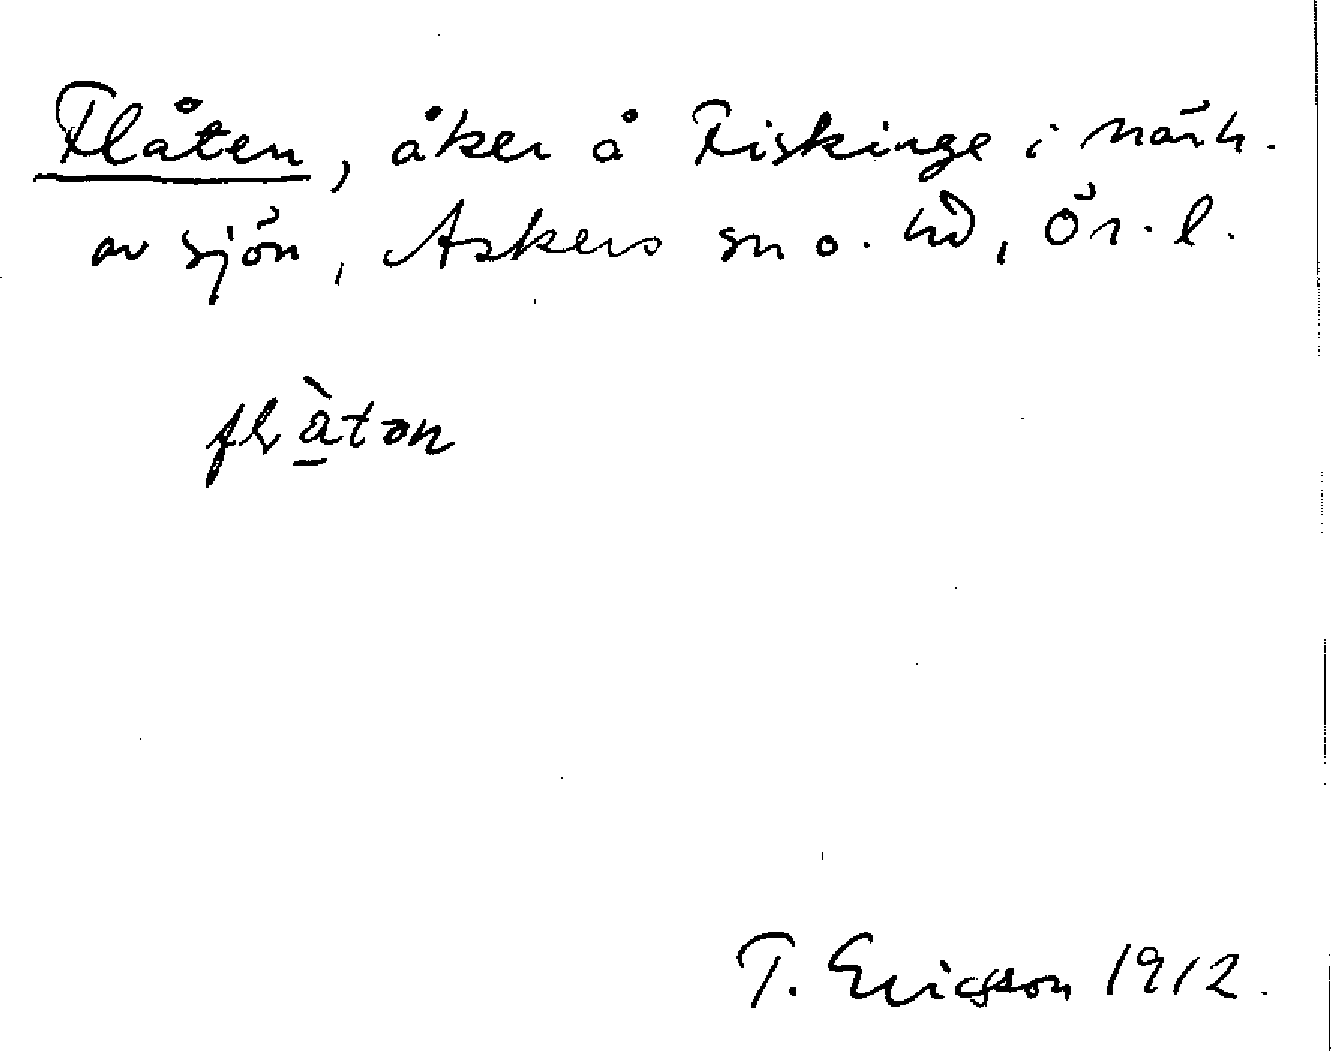 Flåten, åker å Fiskinge i närh.
av sjön, Askers sn o. hd, Ör. l.
flàtən
T. Ericsson 1912.